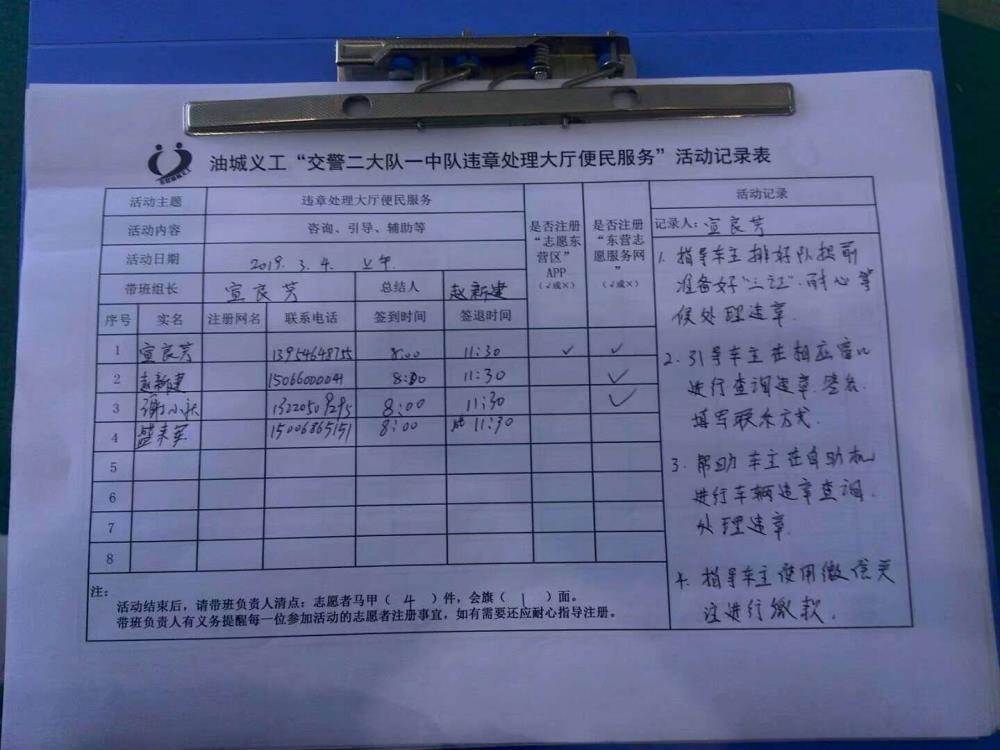 油城义工“交警二大队一中队违章处理大厅便民服务”活动记录表
活动主题 违章处理大厅便民服务
活动内容 咨询、引导、辅助等
活动日期 2019. 3. 4. 上午
带班组长 宣良芳 总结人 赵新建
是否注册“志愿东营区”APP（√或×）
是否注册“东营志愿服务网”（√或×）
序号 实名 注册网名 联系电话 签到时间 签退时间
1 宣良芳 8:00 11:30 √ √
2 赵新建 15066000041 8:00 11:30 √
3 8:00 11:30 √
4 15006865151 8:00 11:30
5
6
7
8
注：
活动结束后，请带班负责人清点：志愿者马甲（ 4 ）件，会旗（ 1 ）面。
带班负责人有义务提醒每一位参加活动的志愿者注册事宜，如有需要还应耐心指导注册。
活动记录
记录人：宣良芳
1. 指导车主排好队提前
准备好“三证”.耐心等
侯处理违章.
2. 引导车主在相应窗口
进行查询违章.
填写联系方式.
3. 帮助车主在自助机
进行车辆违章查询.
处理违章.
4. 指导车主使用微信关
注进行缴款.